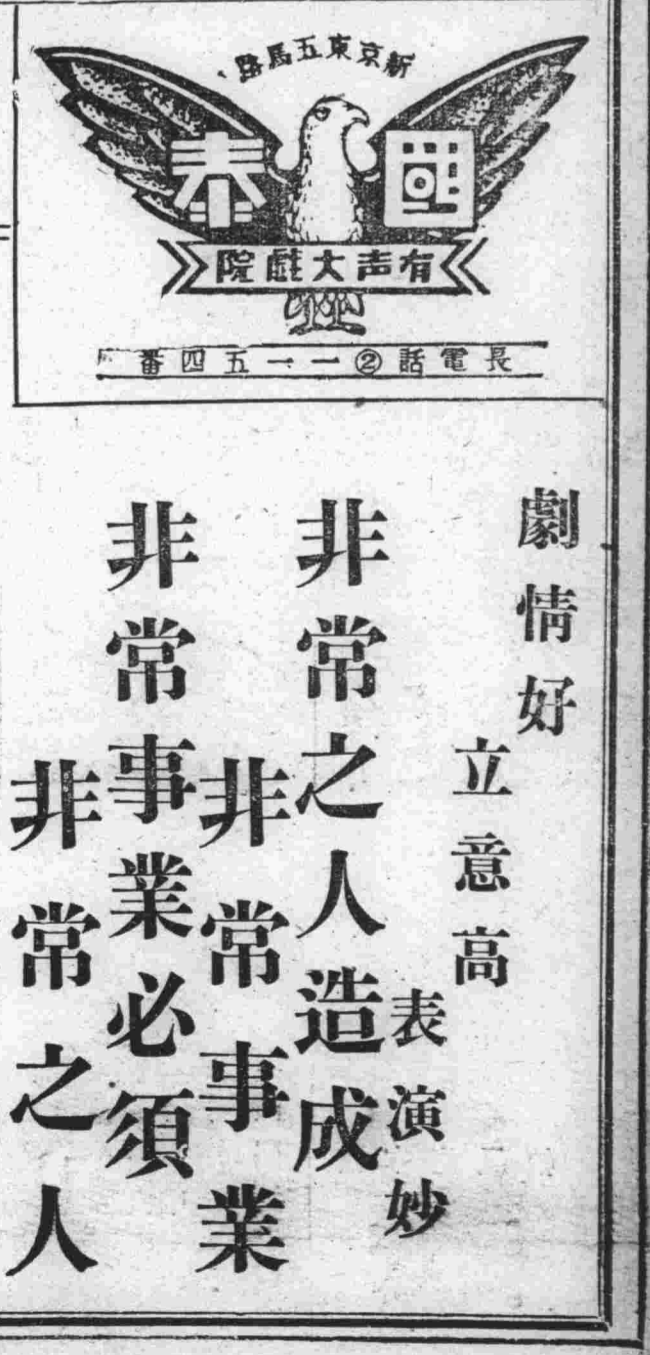 新京東五馬路
國泰
有声大戯院
長電話②一一五四番
劇情好
立意高
表演妙
非常之人造成
非常事業
非常事業必須
非常之人